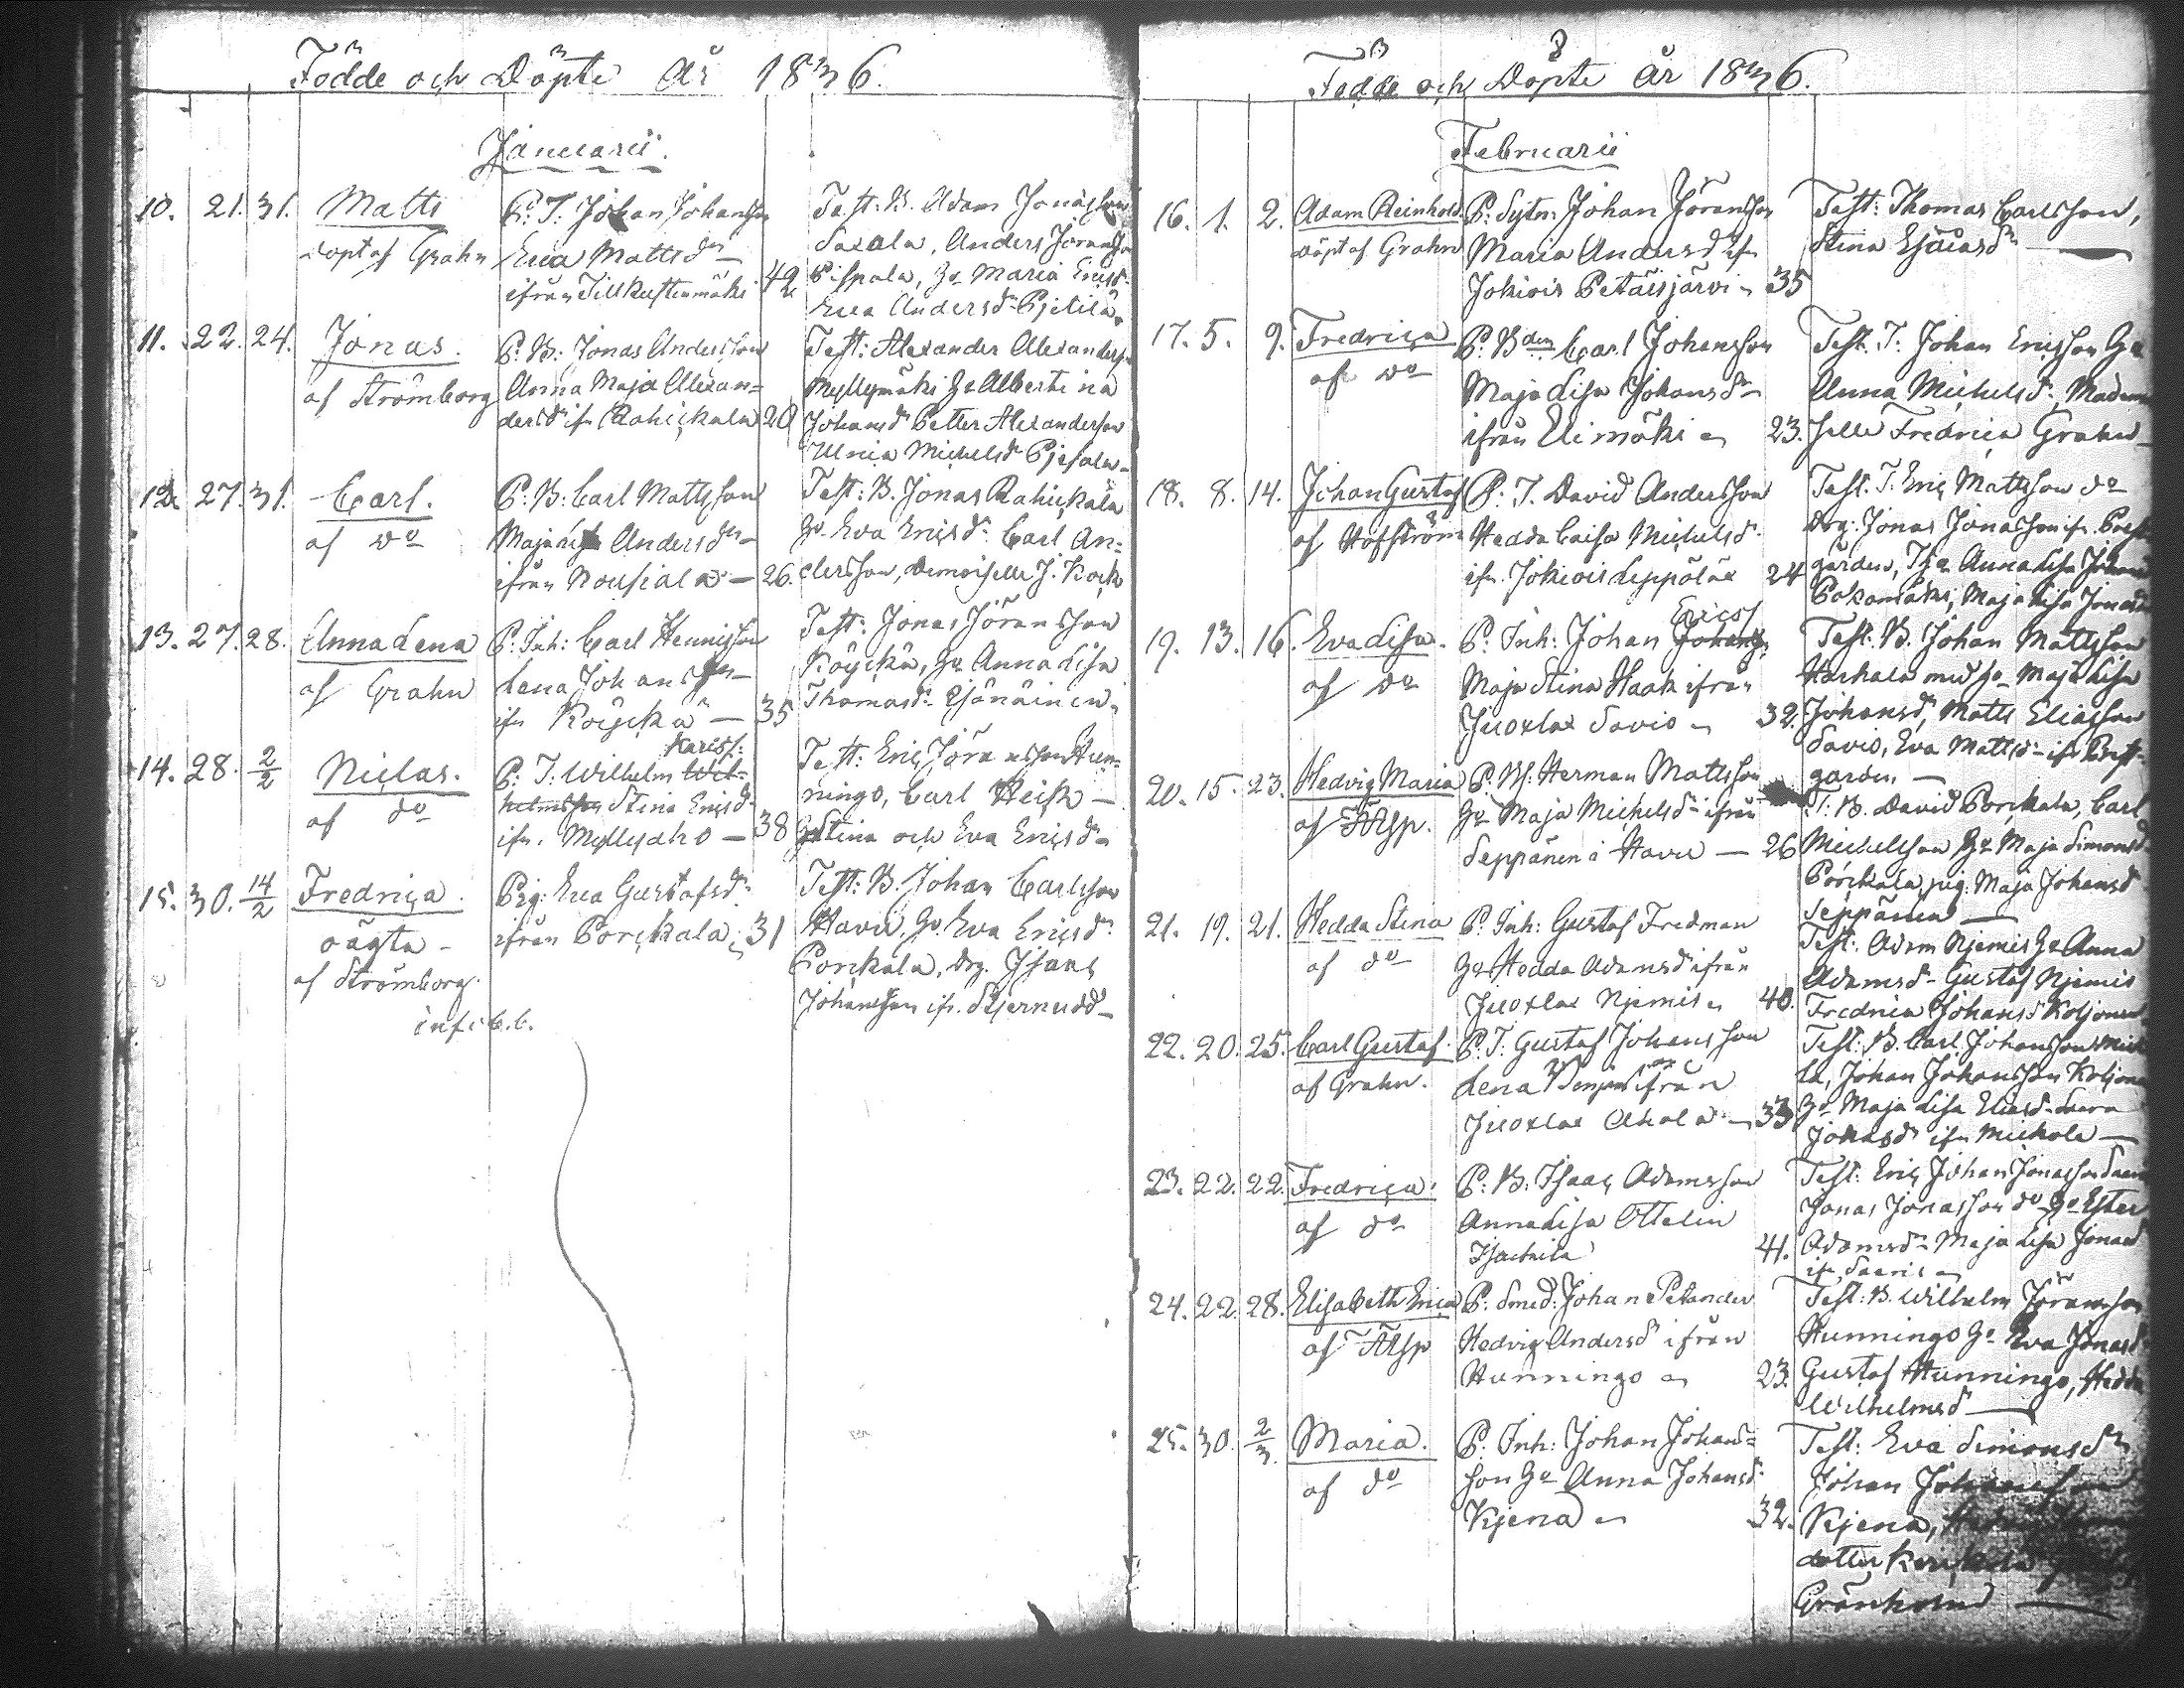 Födde och Döpte År 1836.
Januarii.
10. 21. 31. Matti
döpt af Grahn
P: T: Johan Johansson
Erica Mattsdr
ifrån Tillkustenmäki 42
Test: B. Adam Jonasson
Saxala, Anders Göransson
Pispala, Ho Maria Ericsd
Erica Andersdr Pjetilä.
11. 22. 24. Jonas.
af Strömborg
P: B: Jonas Andersson
Anna Maja Alexan=
dersdr ifr Rahickala 20
Test: Alexander Alexanderss
Myllymäki Ho Albertina
Johansdr Petter Alexandersson
Ulrica Michelsdr
12. 27. 31. Carl.
af do
P: B: Carl Mattsson
Maja Lisa Andersdr
ifrån Nousiala 26.
Test: B. Jonas Rahickala
Ho Eva Ericsdr Carl An=
dersson, Demoiselle J. Kock
13. 27. 28. Anna Lena
af Grahn
P: Inh: Carl Hennisson
Lena Johansdr
ifr Köyckä 35
Test: Jonas Göransson
Köyckä, Ho Anna Lisa
Thomasdr
14. 28. 2/2 Niclas.
af do
Kariss:
P: T: Wilhelm Wil=
helmsson Stina Ericsd
ifr. Myllyaho 38
Test: Eric Göransson Hun=
ningo, Carl Heik
Ho Stina och Eva Ericsdr
15. 30. 14/2 Fredrica.
oägta
af Strömborg.
Pig: Erica Gustafsdr
ifrån Porckala 31
Test: B. Johan Carlsson
Havu, Ho Eva Ericsdr
Porckala, Drg. Isaac
Johansson ifr. Stjernudd
Födde och Döpte År 1836.
Februarii
16. 1. 2. Adam Reinhold
döpt af Grahn
P: Sytn: Johan Göransson
Maria Andersdr ifr
Jokiois Petäisjärvi 35
Test: Thomas Carlsson,
Stina Esaiasdr
17. 5. 9. Fredrica
af do
P: Bden Carl Johansson
Maja Lisa Johansdr
ifrån Elimäki 23.
Test. T: Johan Ericsson Ho
Anna Michelsdr, Madem
selle Fredrica Grahn
18. 8. 14. Johan Gustaf
af Hofström
P. T. David Andersson
Hedda Caisa Michelsd
ifr. Jokiois Leppälax 24
Test. T. Eric Mattsson do
Drg. Jonas Jonasson ifr. Prest
gården, Tja Anna Lisa
Maja Lisa Jonasdr
19. 13. 16. Eva Lisa.
af do
Ericss
P: Inh: Johan Johanss:
Maja Stina Haak ifrån
Juoxlax Savio 32.
Test. B. Johan Mattsson
Harkala med Ho Maja Lisa
Johansdr, Matts Eliasson
Savio, Eva Mattsdr ifr Prest=
gården.
20. 15. 23. Hedvig Maria
af
P: B: Herman Mattsson
Ho Maja Michelsdr ifrån
Seppänen i Havu 26
T: B. David Porckala, Carl
Michelsson Ho Maja Simonsd
Porckala, pig. Maja Johansd
Seppänen
21. 19. 21. Hedda Stina
af do
P. Inh: Gustaf Fredman
Ho Hedda Adamsd ifrån
Juoxlax Njemis 40.
Test: Adam Njemis Ho Anna
Adamsdr Gustaf Njemis
Fredrica Johansd Koljonen
22. 20. 25. Carl Gustaf.
af Grahn.
P: T: Gustaf Johansson
Lena ifrån
Juoxlax Ahola 33
Test: B. Carl Johansson
Johan Johansson
Ho Maja Lisa Eliasdr
Jonasdr ifr Mickola
23. 22. 22. Fredrica.
af do
P: B: Isaac Adamsson
Anna Lisa Ottelin
41.
Test: Eric Johan Jonasson
Jonas Jonasson do Ho Ester
Adamsdr Maja Lisa Jonasd
ifr Saaris
24. 22. 28. Elisabeth Erica
af
P: Smed: Johan Petander
Hedvig Andersdr ifrån
Hunningo 23.
Test: B. Wilhelm Göransson
Hunningo Ho Eva Jonasd
Gustaf Hunningo, Hedda
Wilhelmsd
25. 30. 2/3. Maria.
af do
P. Inh: Johan Johans=
son Ho Anna Johansdr
Kjena 32.
Test: Eva Simonsdr
Johan Johansson
Kjena,
dotter
Grönholm